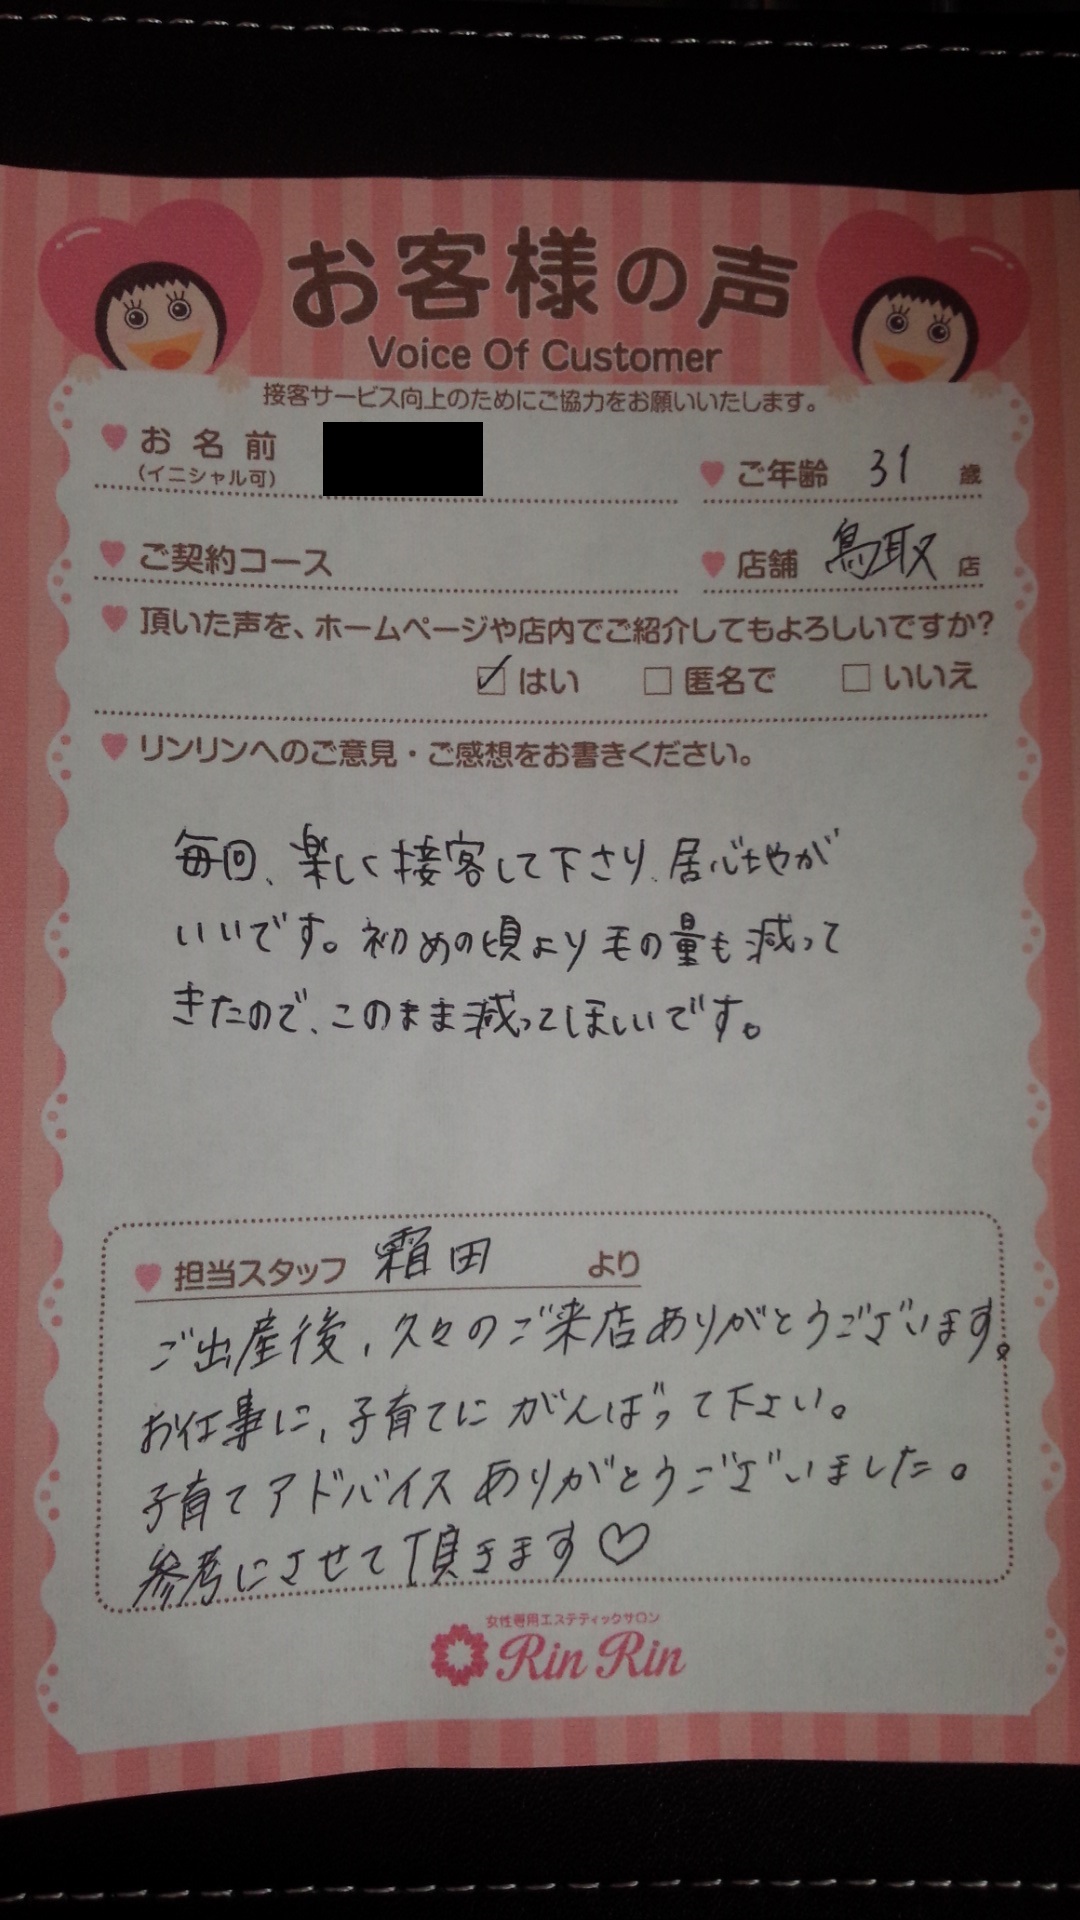 お客様の声
Voice Of Customer
接客サービス向上のためにご協力をお願いいたします。
お名前
(イニシャル可)
ご年齢 31 歳
ご契約コース
店舗 鳥取 店
頂いた声を、ホームページや店内でご紹介してもよろしいですか?
はい 匿名で いいえ
リンリンへのご意見・ご感想をお書きください。
毎回、楽しく接客して下さり、居心地が
いいです。初めの頃より毛の量も減って
きたので、このまま減ってほしいです。
担当スタッフ 田 より
ご出産後、久々のご来店ありがとうございます。
お仕事に、子育てにがんばって下さい。
子育てアドバイスありがとうございました。
参考にさせて頂きます♡
女性専用エステティックサロン
Rin Rin